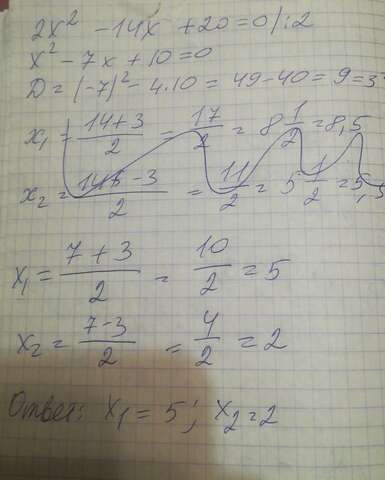 2x² - 14x + 20 = 0 |:2
x² - 7x + 10 = 0
D = (-7)² - 4·10 = 49 - 40 = 9 = 3²
x₁ = (14+3)/2 = 17/2 = 8 1/2 = 8,5
x₂ = (14-3)/2 = 11/2 = 5 1/2 = 5,5
x₁ = (7+3)/2 = 10/2 = 5
x₂ = (7-3)/2 = 4/2 = 2
Ответ: x₁ = 5; x₂ = 2